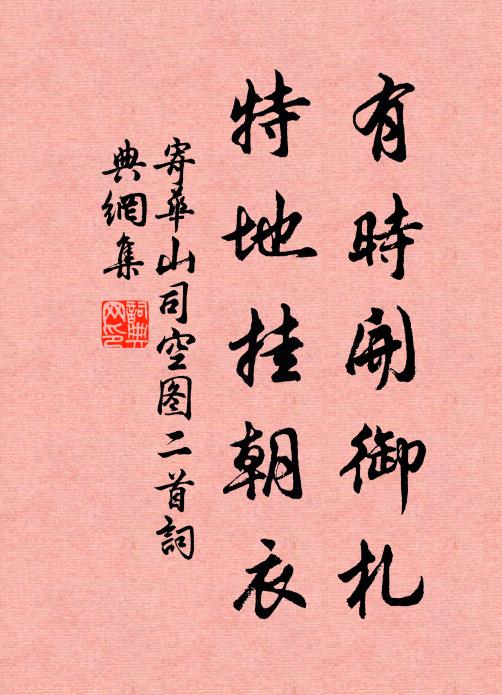 有時開御札
特地挂朝衣
寄華山司空图二首詞
典網集
詞典网印